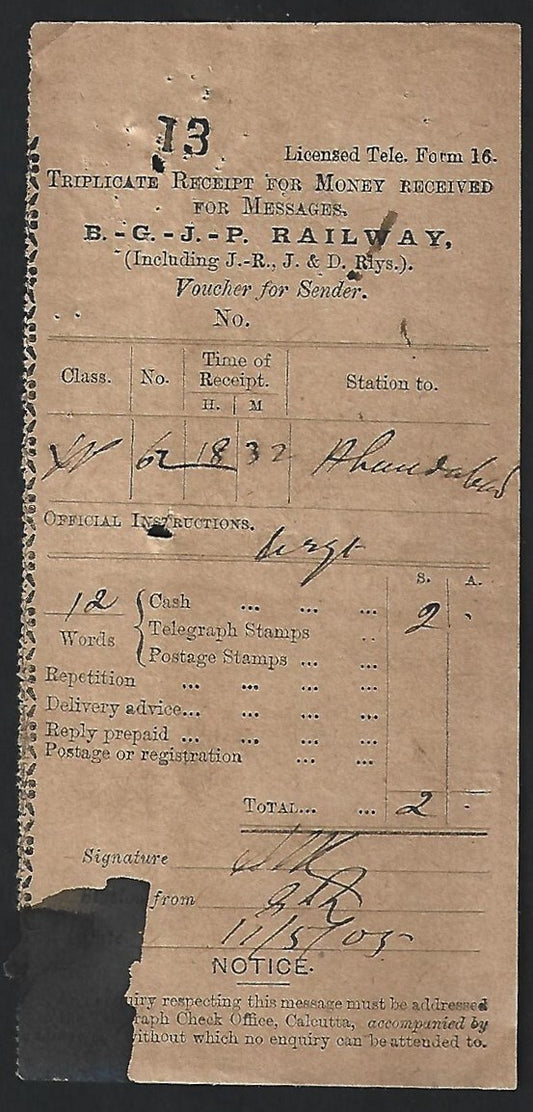 13
Licensed Tele. Form 16.
TRIPLICATE RECEIPT FOR MONEY RECEIVED
FOR MESSAGES.
B.-G.-J.-P. RAILWAY,
(Including J.-R., J. & D. Rlys.).
Voucher for Sender.
No.
Class. No. Time of Receipt. Station to.
H. M
62 18 32
OFFICIAL INSTRUCTIONS.
S. A.
12 Cash ... ... ... 2 .
Words Telegraph Stamps ..
Postage Stamps ... ...
Repetition ... ... ... ...
Delivery advice... ... ... ...
Reply prepaid ... ... ... ...
Postage or registration ... ...
TOTAL... ... 2 -
Signature
from
11/5/05
NOTICE.
uiry respecting this message must be addressed
raph Check Office, Calcutta, accompanied by
ithout which no enquiry can be attended to.